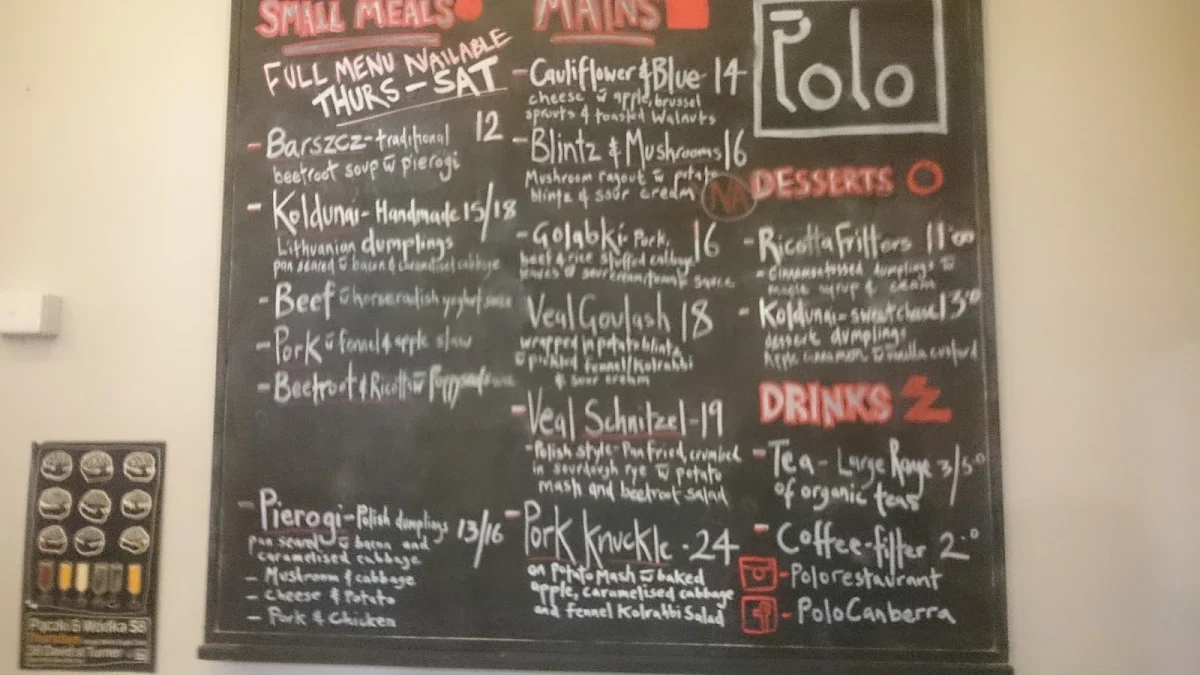 SMALL MEALS
FULL MENU AVAILABLE
THURS-SAT
- Barszcz-traditional 12
beetroot soup w pierogi
- Koldunai- Handmade 15/18
Lithuanian dumplings
pan seared w bacon & caramelised cabbage
- Beef w horseradish yoghurt
- Pork w fennel & apple slaw
- Beetroot & Ricotta w
- Pierogi-Polish dumplings 13/16
pan seared w bacon and
caramelised cabbage
- Mushroom & cabbage
- Cheese & Potato
- Pork & Chicken
MAINS
- Cauliflower & Blue- 14
cheese w apple, brussel
sprouts & toasted walnuts
- Blintz & Mushrooms 16
Mushroom ragout w potato
blintz & sour cream NA
- Golabki- Pork, 16
beef & rice stuffed cabbage
leaves w sour cream/tomato sauce
Veal Goulash 18
wrapped in potato blintz
w pickled fennel/Kolrahbi
& sour cream
- Veal Schnitzel-19
- Polish style- Pan fried, crumbed
in sourdough rye w potato
mash and beetroot salad
- Pork Knuckle -24
on Potato Mash w baked
apple, caramelised cabbage
and fennel Kolrahbi Salad
Polo
DESSERTS
- Ricotta Fritters 11.00
- Cinnamon tossed dumplings w
maple syrup & cream
- Koldunai- sweet cheese 13.00
dessert dumplings
Apple cinnamon w vanilla custard
DRINKS
- Tea- Large Range 3/5.0
of organic teas
- Coffee-filter 2.0
- Polorestaurant
- PoloCanberra
Pączki & Wódka $8
Thursdays